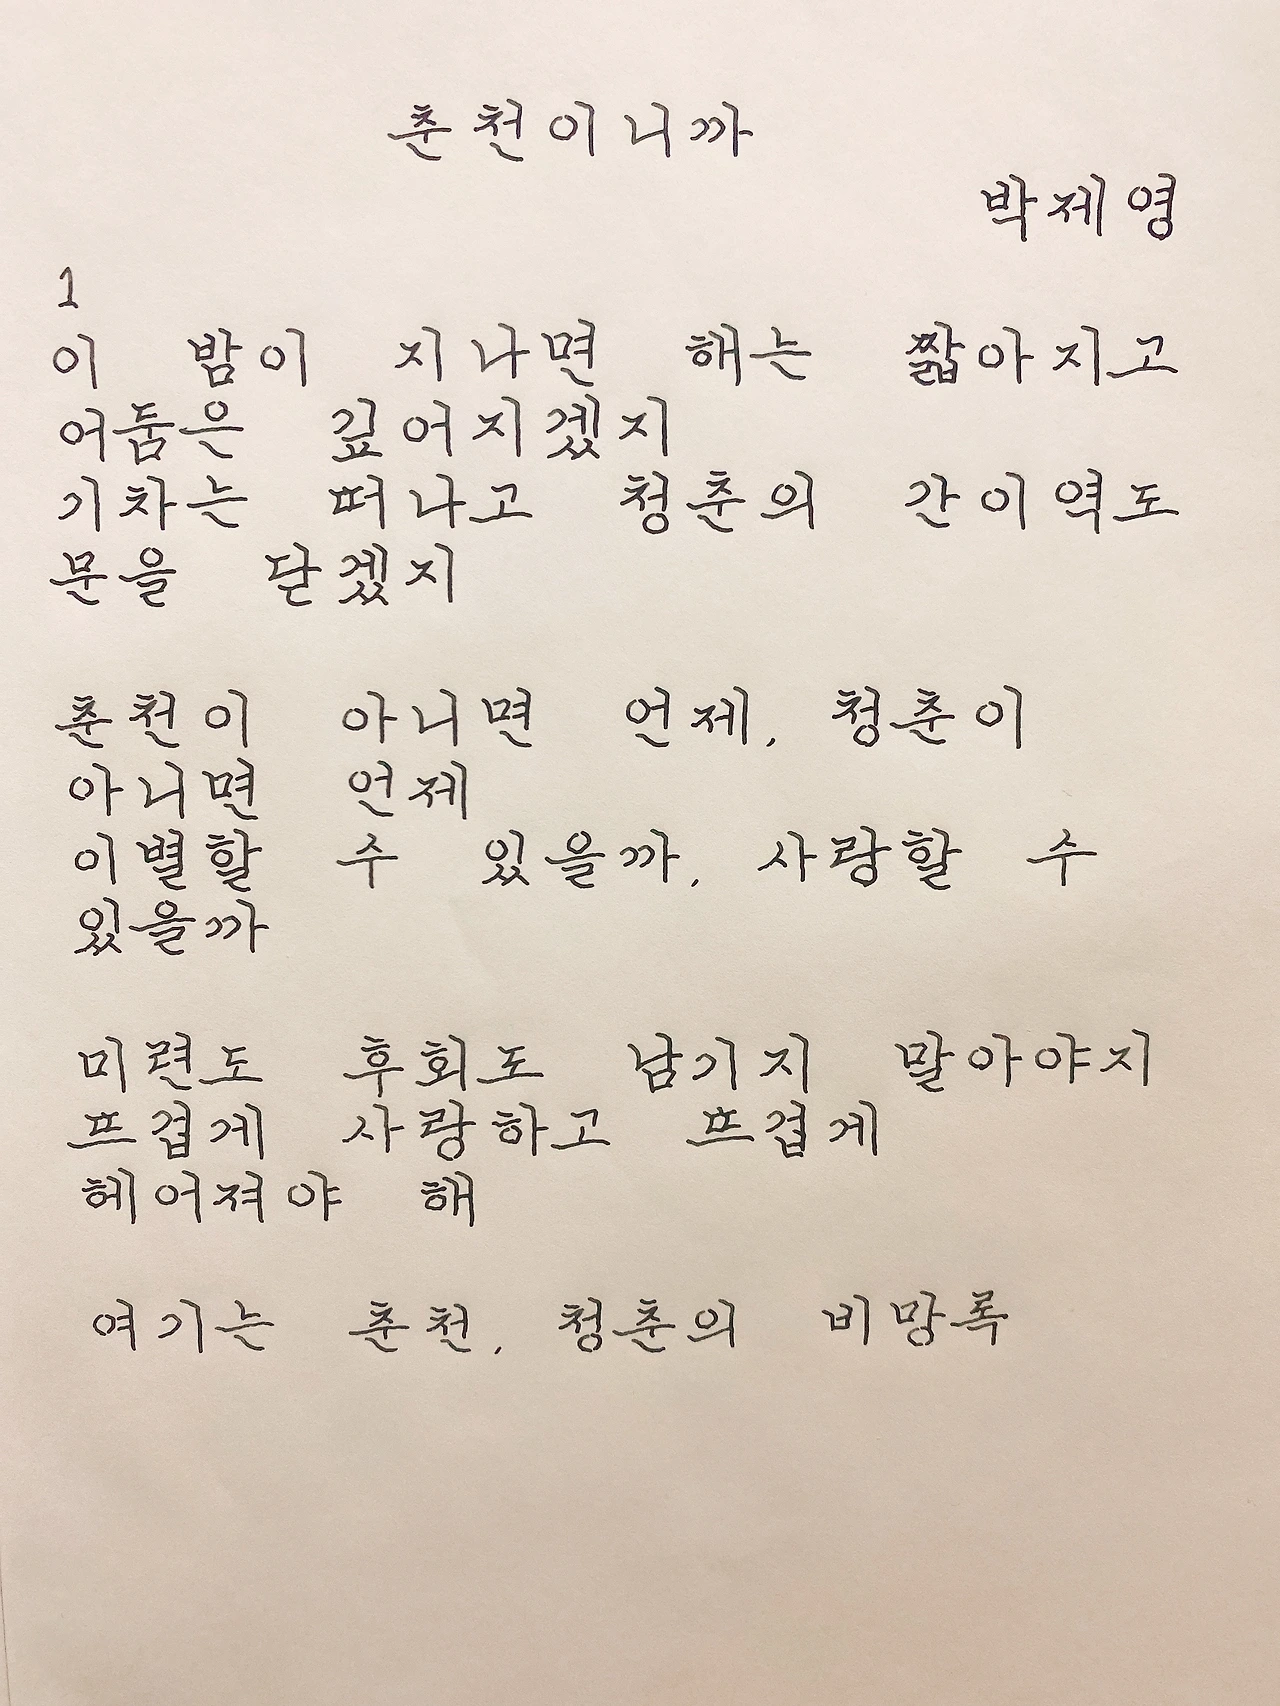 춘천이니까
박제영
1
이 밤이 지나면 해는 짧아지고
어둠은 깊어지겠지
기차는 떠나고 청춘의 간이역도
문을 닫겠지
춘천이 아니면 언제, 청춘이
아니면 언제
이별할 수 있을까, 사랑할 수
있을까
미련도 후회도 남기지 말아야지
뜨겁게 사랑하고 뜨겁게
헤어져야 해
여기는 춘천, 청춘의 비망록